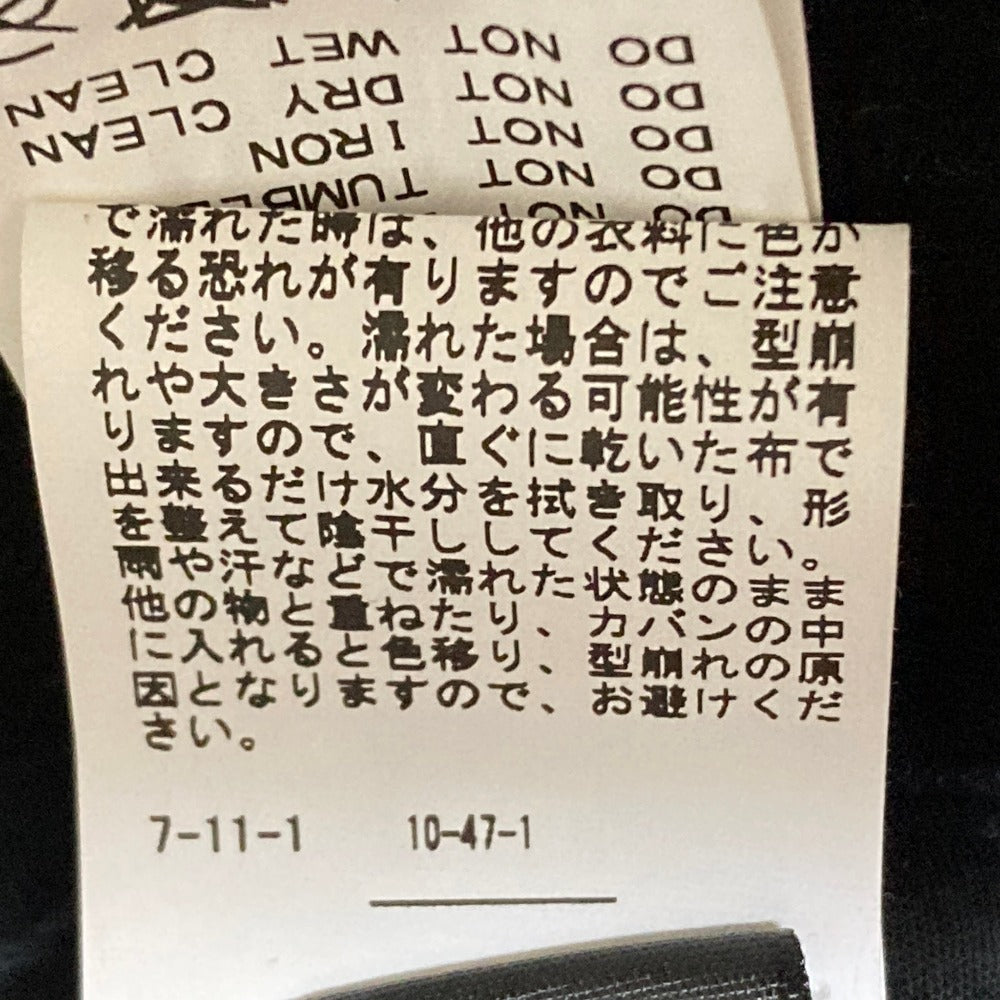 DO NOT WET CLEAN
DO NOT DRY CLEAN
DO NOT IRON
DO NOT TUMBLE
で濡れた時は、他の衣料に色が
移る恐れが有りますのでご注意
ください。濡れた場合は、型崩
れや大きさが変わる可能性が有
りますので、直ぐに乾いた布で
出来るだけ水分を拭き取り、形
を整えて陰干ししてください。
雨や汗などで濡れた状態のまま
他の物と重ねたり、カバンの中
に入れると色移り、型崩れの原
因となりますので、お避けくだ
さい。
7-11-1 10-47-1